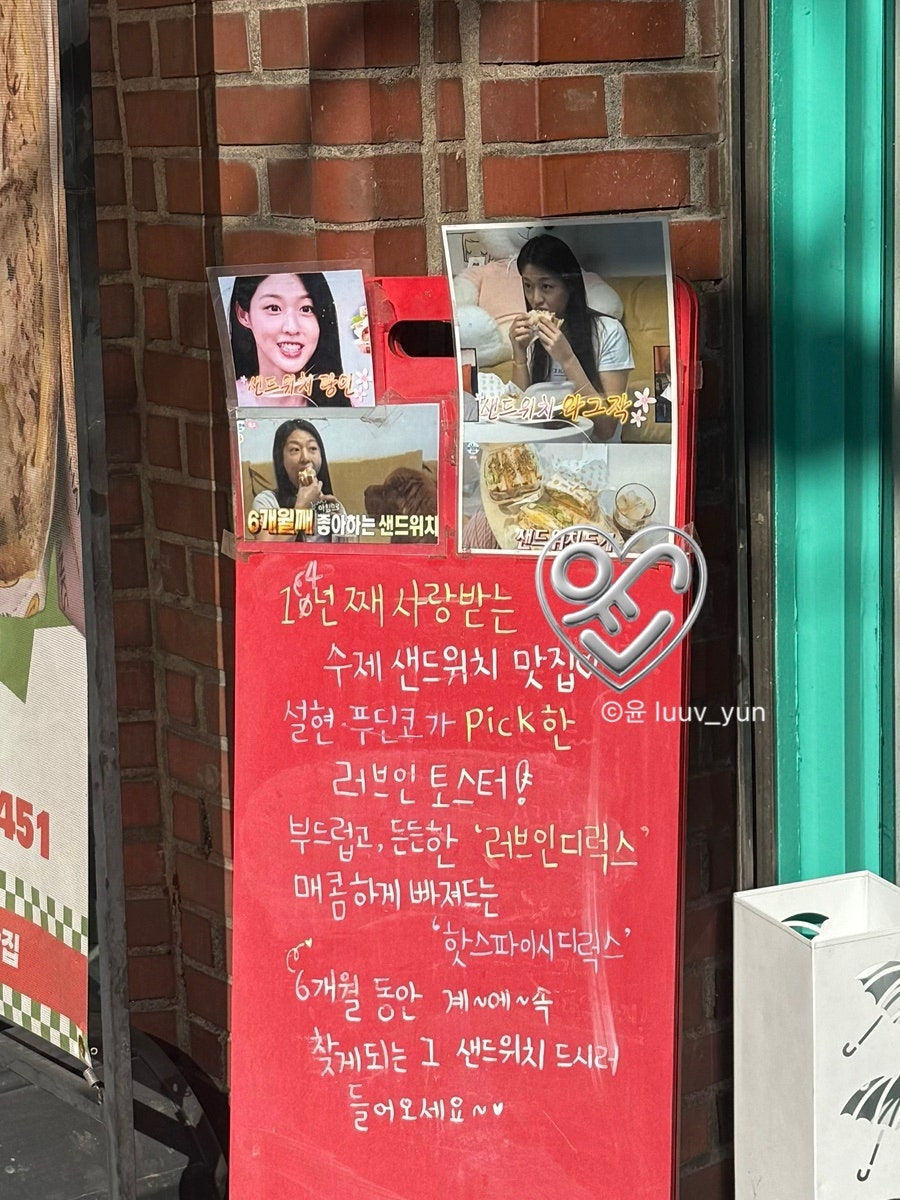 샌드위치 광인
샌드위치 와그작
6개월째 좋아하는 샌드위치
14년 째 사랑받는
수제 샌드위치 맛집
설현·푸딘코가 Pick한
러브인 토스터!
부드럽고, 든든한 '러브인디럭스'
매콤하게 빠져드는
'핫스파이시디럭스'
6개월 동안 계~에~속
찾게되는 그 샌드위치 드시러
들어오세요~♥
윤
©윤 luuv_yun
451
집